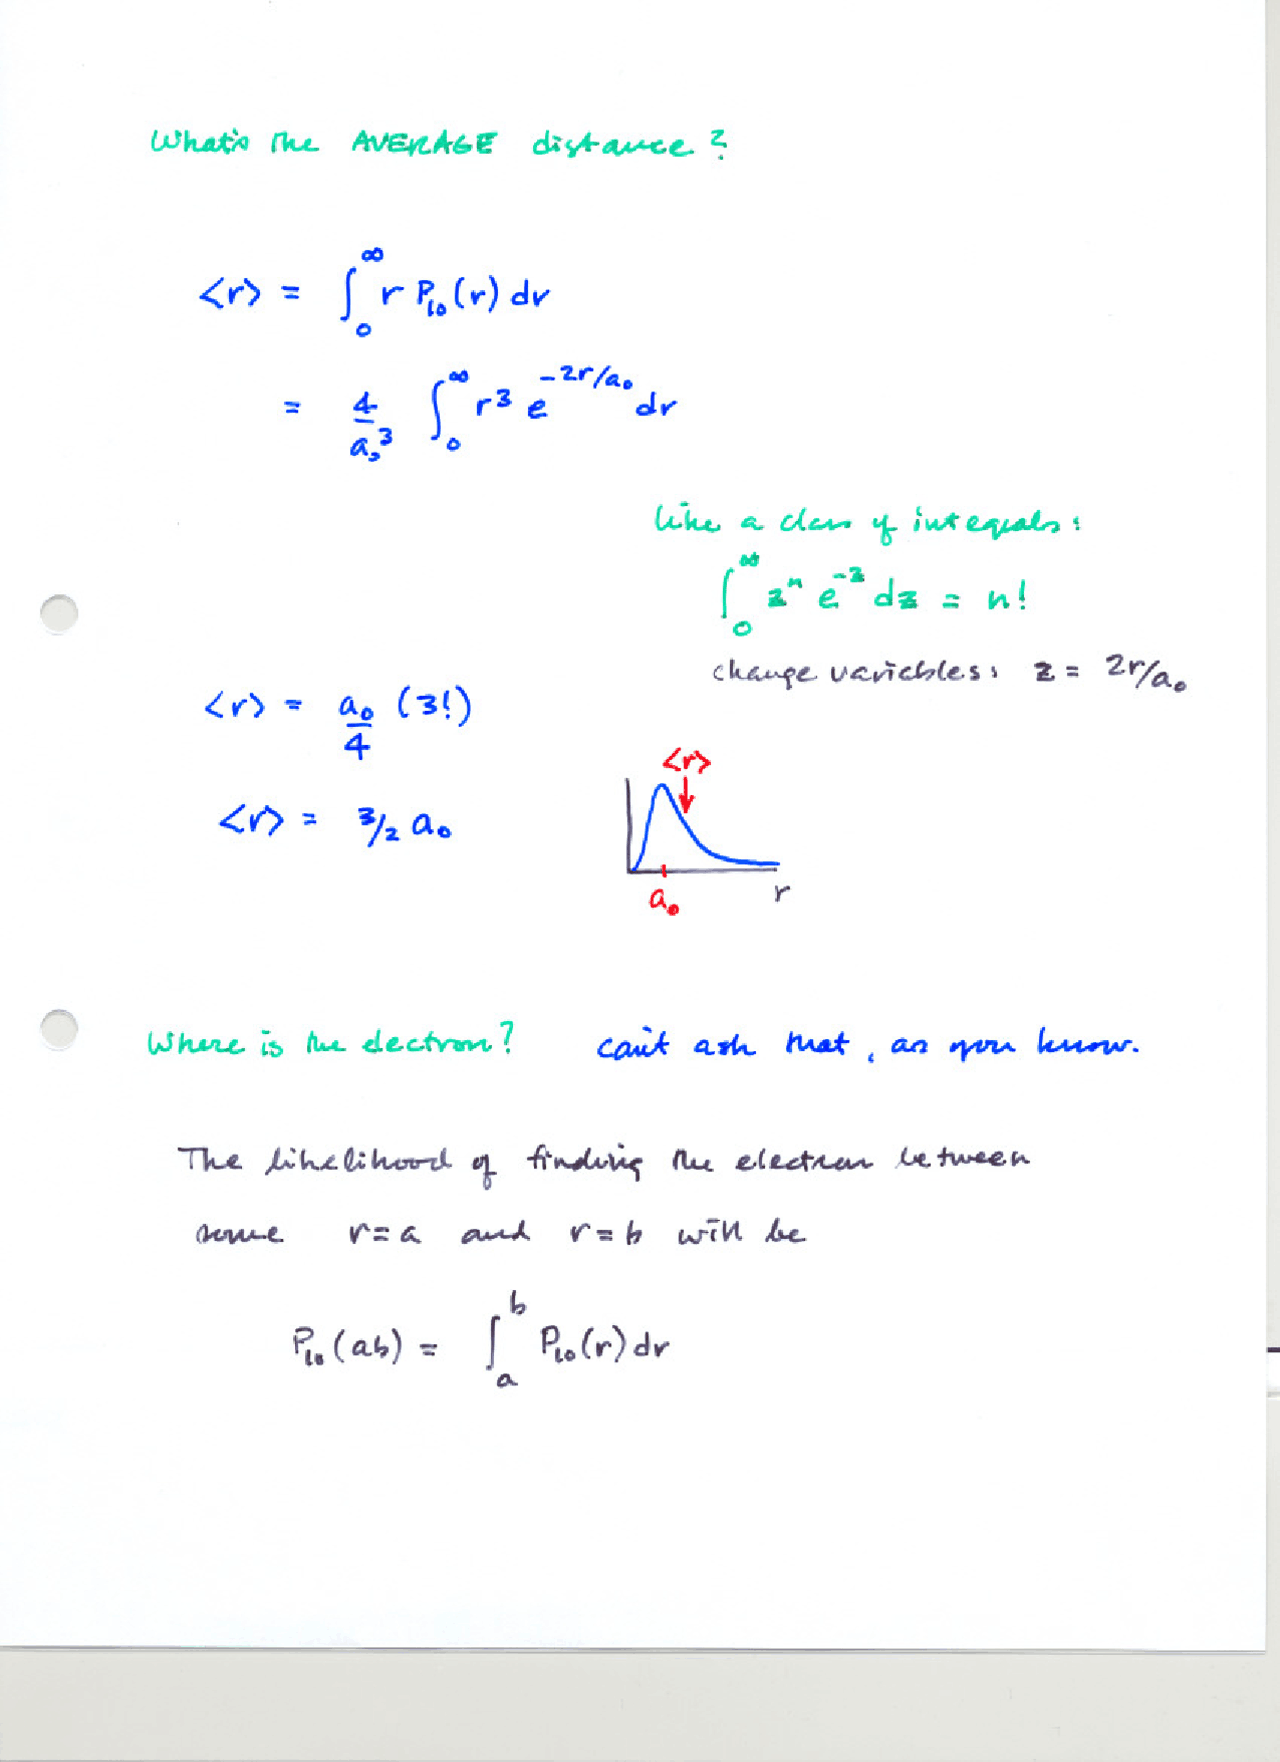 What's the AVERAGE distance?
<r> = ∫₀^∞ r P₁₀(r) dr
= 4/a₀³ ∫₀^∞ r³ e^(-2r/a₀) dr
like a class of integrals:
∫₀^∞ zⁿ e^(-z) dz = n!
change variables: z = 2r/a₀
<r> = a₀/4 (3!)
<r>
<r> = 3/2 a₀
a₀
r
Where is the electron? can't ask that, as you know.
The likelihood of finding the electron between
some r=a and r=b will be
P₁₀(ab) = ∫ₐ^b P₁₀(r) dr